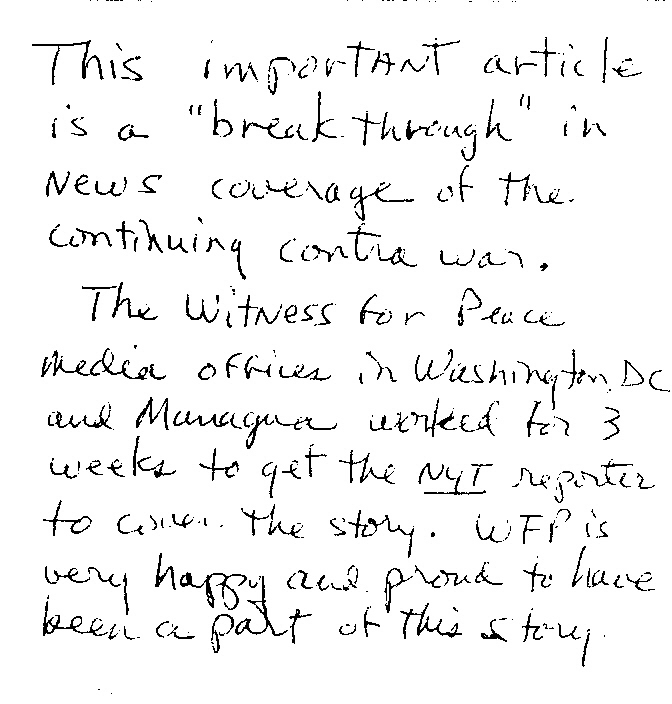 This important article
is a "breakthrough" in
News coverage of the
continuing contra war.
The Witness for Peace
media offices in Washington, DC
and Managua worked for 3
weeks to get the NYT reporter
to cover the story. WFP is
very happy and proud to have
been a part of this story.